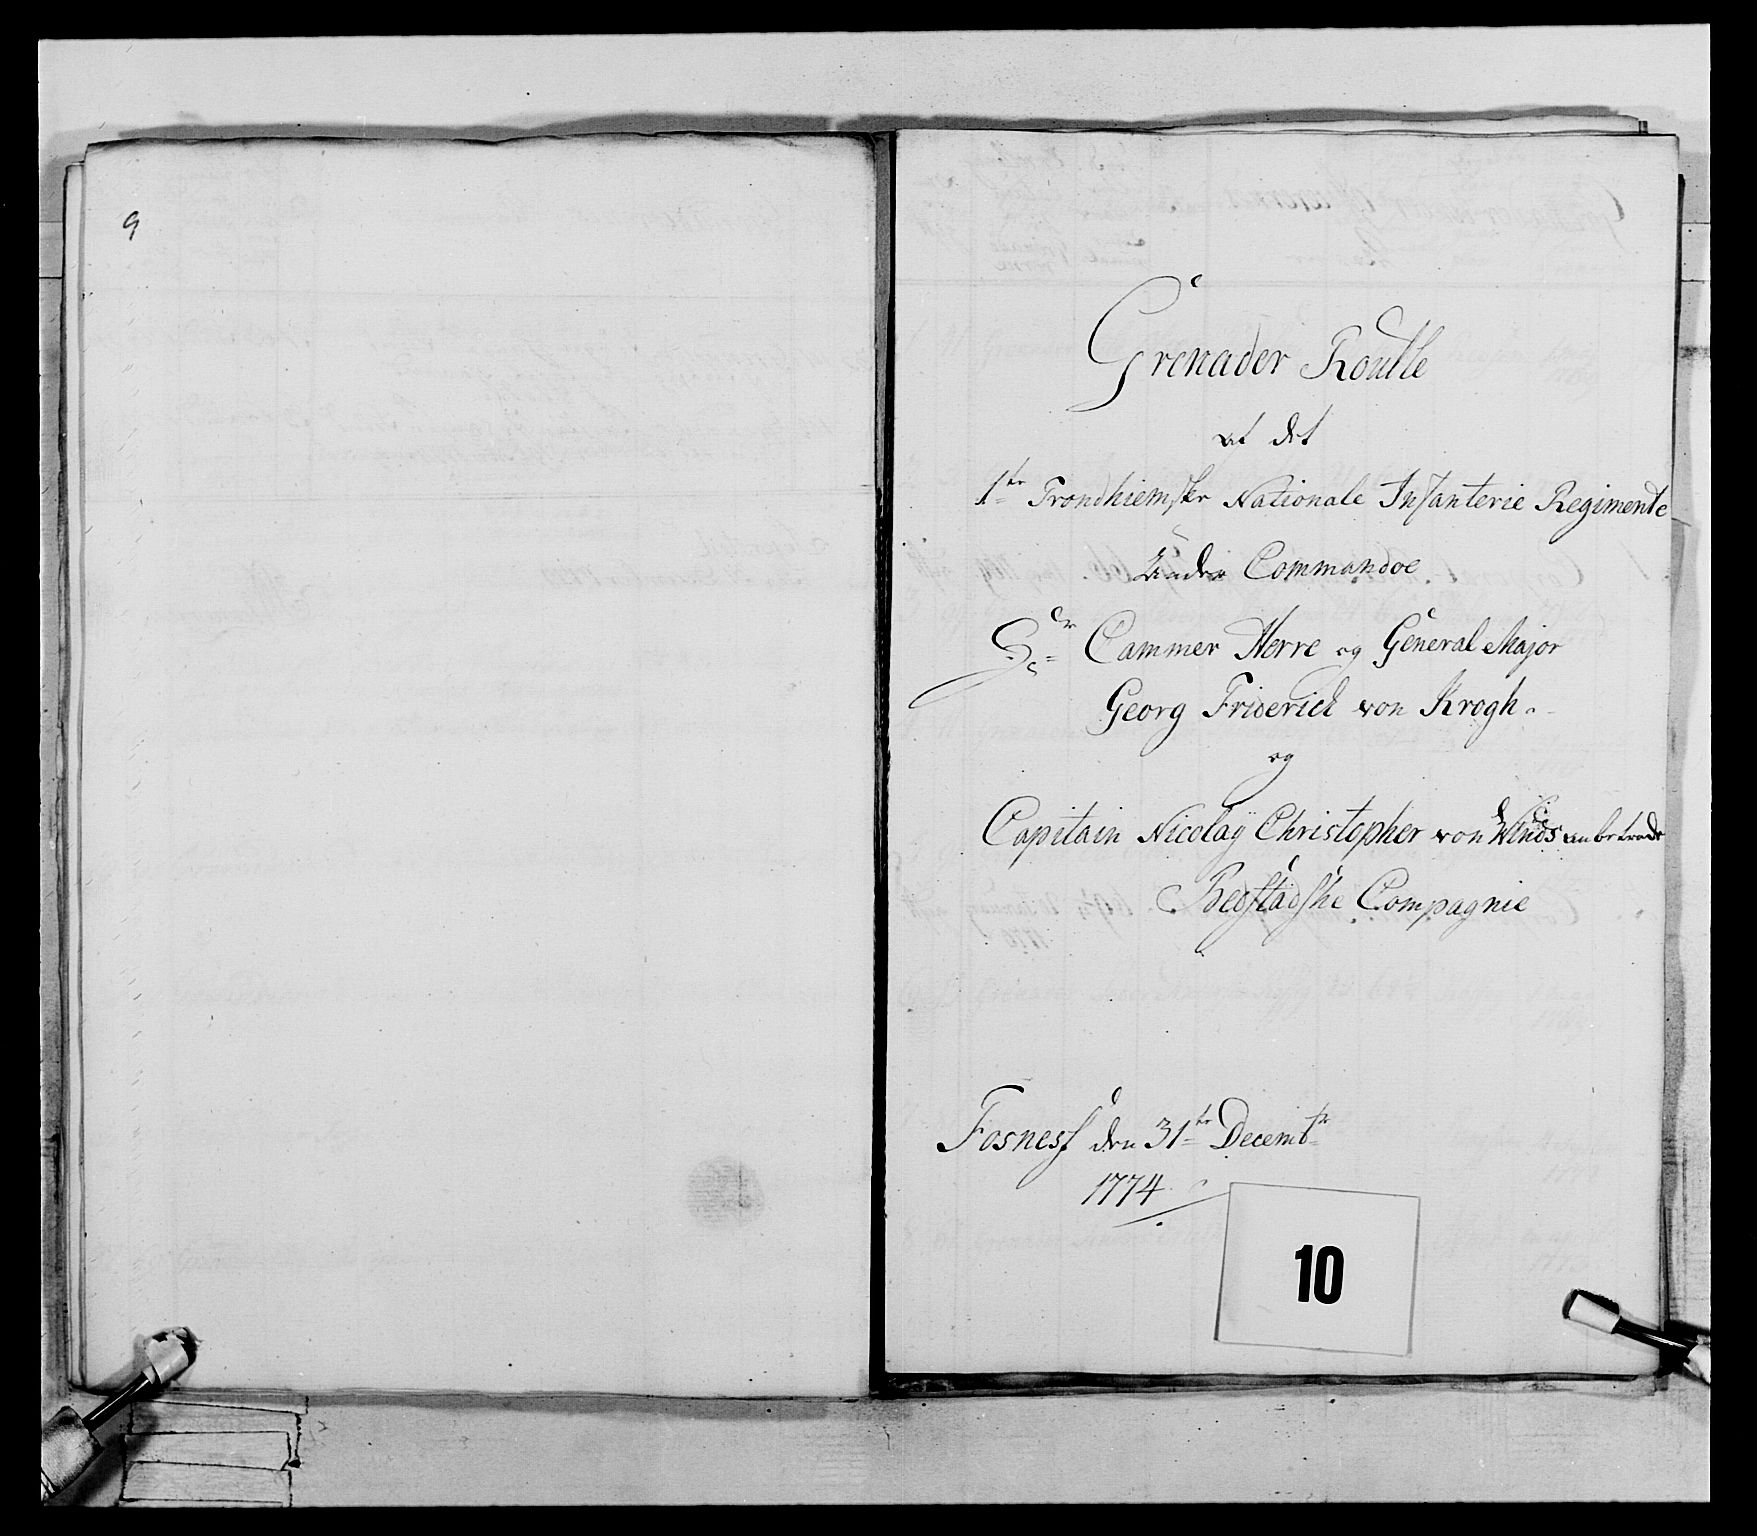 9
Grenader Roulle
af det
1te Trondhiemske Nationale Infanterie Regimente
Under Commandoe
Hr Cammer Herre og General Major
Georg Friderich von Krogh
og
Capitain Nicolaÿ Christopher von anbetrade
Bedstadske Compagnie
Fosness den 31te Decembr
1774
10